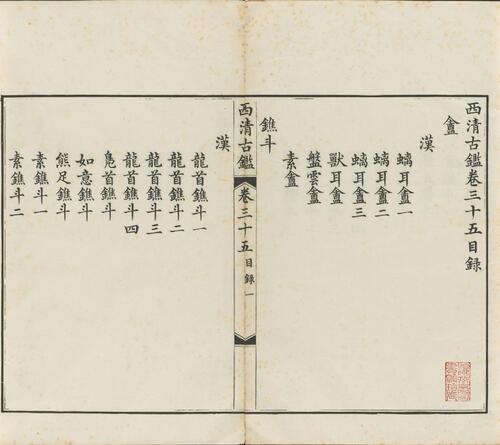 西清古鑑卷三十五目録
奩
漢
螭耳奩一
螭耳奩二
螭耳奩三
獸耳奩
盤雲奩
素奩
鐎斗
西清古鑑 卷三十五 目録 一
漢
龍首鐎斗一
龍首鐎斗二
龍首鐎斗三
龍首鐎斗四
鳧首鐎斗
如意鐎斗
熊足鐎斗
素鐎斗一
素鐎斗二